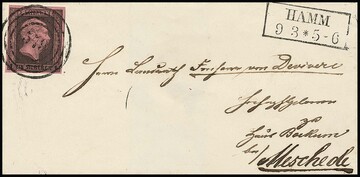 HAMM
9 3 * 5-6
Herrn Landrath Freiherr von Devivere
zu
Haus Bockum
bei Meschede